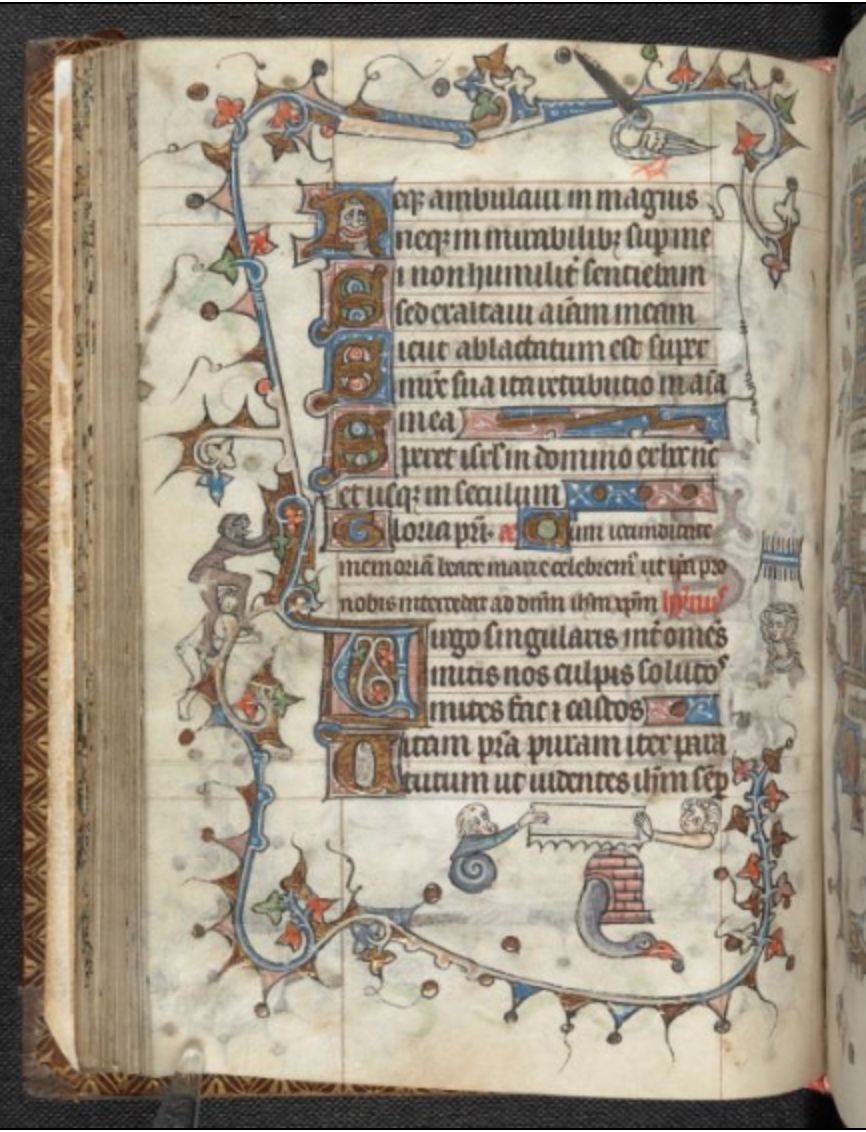 Neqꝫ ambulaui in magnis
neqꝫ in mirabilibꝫ sup me
Si non humilit sentiebam
sed exaltaui aiam meam
Sicut ablactatum est supr
mre sua ita retributio in aia
mea
Speret isrl in domino ex hoc nc
et usqꝫ in seculum
Gloria pri. a Cum iocunditate
memoriā beate marie celebremꝰ ut ipa pro
nobis intercedat ad dnm ihm xpm ypnus
Virgo singularis int omēs
mitis nos culpis solutos
mites fac ⁊ castos
Vitam pra puram iter para
tutum ut uidentes ihm sep